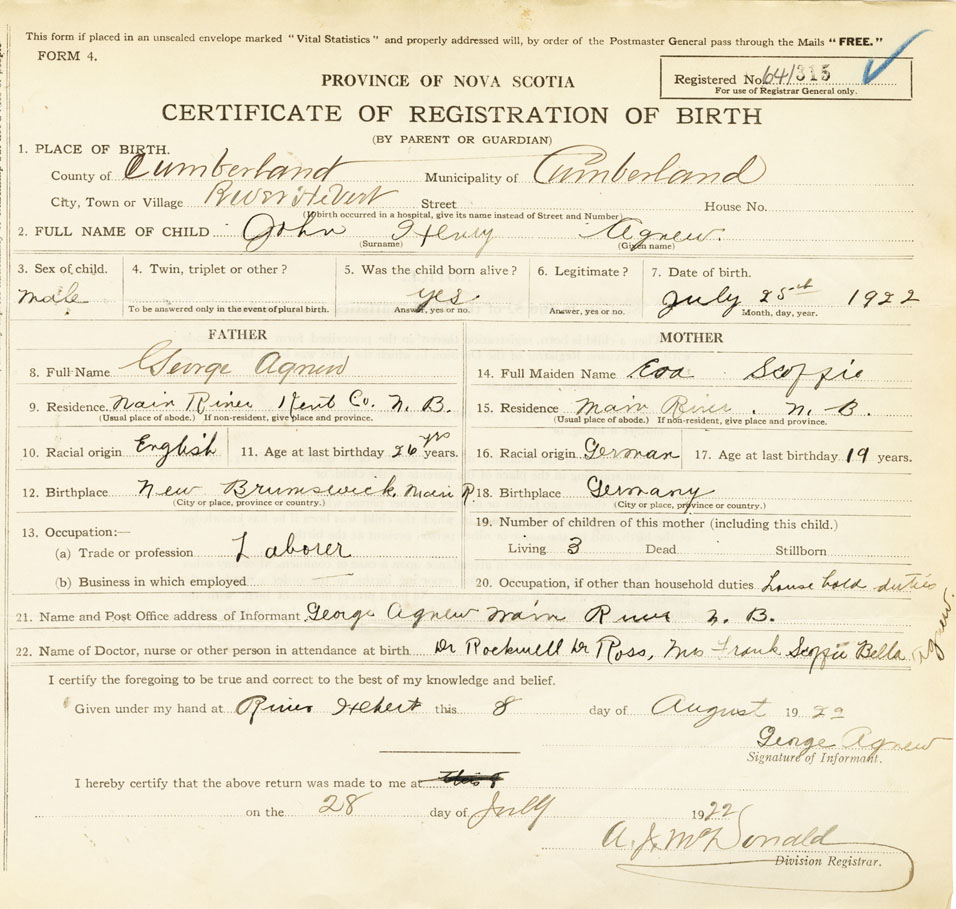 This form if placed in an unsealed envelope marked "Vital Statistics" and properly addressed will, by order of the Postmaster General pass through the Mails "FREE."
FORM 4.
Registered No. 64/315
For use of Registrar General only.
PROVINCE OF NOVA SCOTIA
CERTIFICATE OF REGISTRATION OF BIRTH
(BY PARENT OR GUARDIAN)
1. PLACE OF BIRTH.
County of Cumberland Municipality of Cumberland
City, Town or Village River Hebert Street House No.
(If birth occurred in a hospital, give its name instead of Street and Number)
2. FULL NAME OF CHILD John Henry Agnew.
(Surname) (Given name)
3. Sex of child. 4. Twin, triplet or other? 5. Was the child born alive? 6. Legitimate? 7. Date of birth.
male yes. July 25th 1922
To be answered only in the event of plural birth. Answer, yes or no. Answer, yes or no. Month, day, year.
FATHER MOTHER
8. Full Name George Agnew 14. Full Maiden Name Eva Scoffie
9. Residence. Main River Kent Co. N. B. 15. Residence Main River. N. B.
(Usual place of abode.) If non-resident, give place and province. (Usual place of abode.) If non-resident, give place and province.
10. Racial origin English 11. Age at last birthday 26 yrs years. 16. Racial origin German 17. Age at last birthday 19 years.
12. Birthplace New Brunswick. Main R. 18. Birthplace Germany
(City or place, province or country.) (City or place, province or country.)
13. Occupation:— 19. Number of children of this mother (including this child.)
(a) Trade or profession Laborer Living 3 Dead Stillborn
(b) Business in which employed 20. Occupation, if other than household duties House hold duties
21. Name and Post Office address of Informant George Agnew Main River N. B.
22. Name of Doctor, nurse or other person in attendance at birth Dr Rockwell Dr Ross, Mrs Frank Scoffie Bella Agnew.
I certify the foregoing to be true and correct to the best of my knowledge and belief.
Given under my hand at River Hebert this 8 day of August 1922
George Agnew
Signature of Informant.
I hereby certify that the above return was made to me at
on the 28 day of July 1922
A. J. McDonald
Division Registrar.